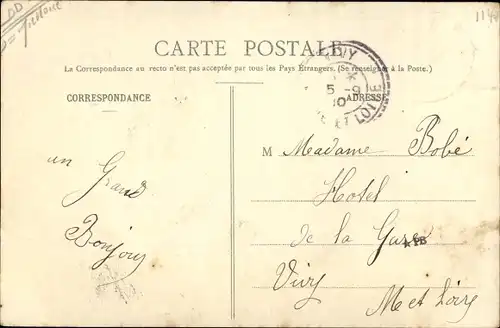 CARTE POSTALE
La Correspondance au recto n'est pas acceptée par tous les Pays Etrangers. (Se renseigner à la Poste.)
CORRESPONDANCE
ADRESSE
5 - 9
10
ET LOIRE
un
Grand
Bonjour
M Madame Bobé
Hotel
de la Gare
Viry
M et Loire